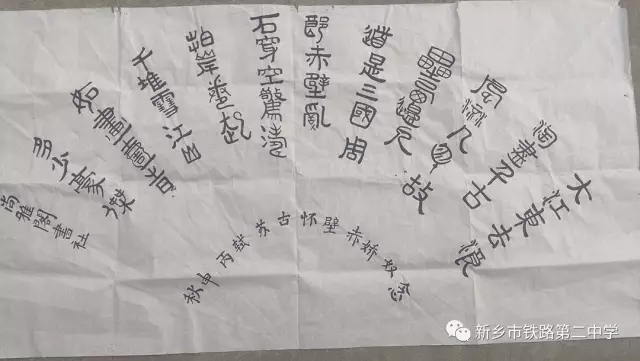 大江東去浪
淘盡千古
風流人物故
壘西邊人
道是三國周
郎赤壁亂
石穿空驚濤
拍岸卷起
千堆雪江山
如畫一時
多少豪傑
尚雅閣書社
念奴娇赤壁怀古苏轼丙申秋
新乡市铁路第二中学